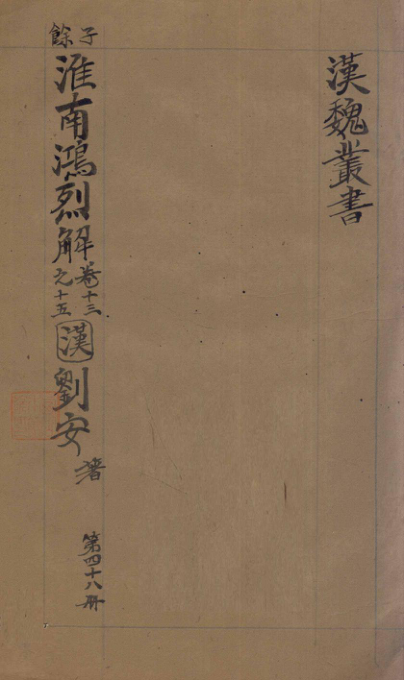 漢魏叢書
子餘
淮南鴻烈解
卷十三
之十五
漢
劉安
著
第四十八册